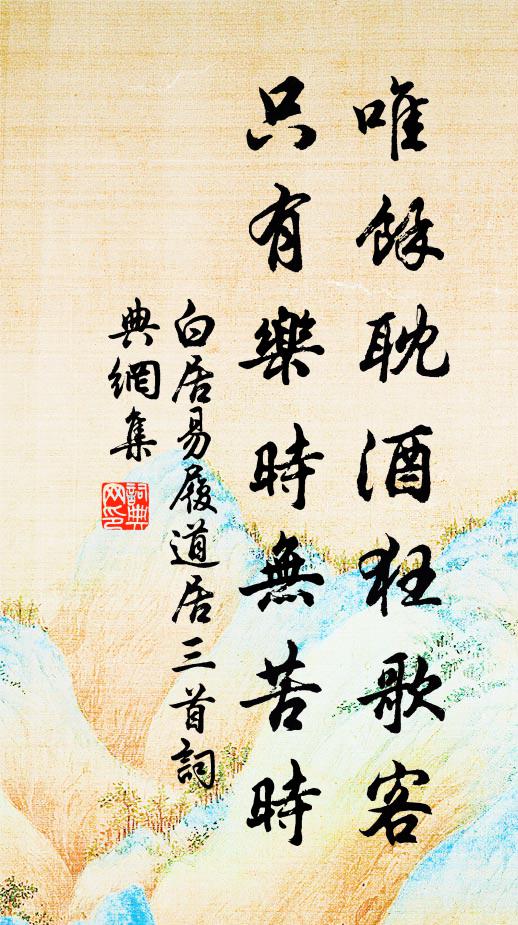 唯餘耽酒狂歌客
只有樂時無苦時
白居易履道居三首詞
典網集
詞典
网印